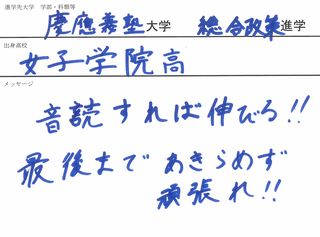 進学先大学 学部・科類等
慶應義塾大学 総合政策進学
出身高校
女子学院高
メッセージ
音読すれば伸びる!!
最後まで あきらめず
頑張れ!!